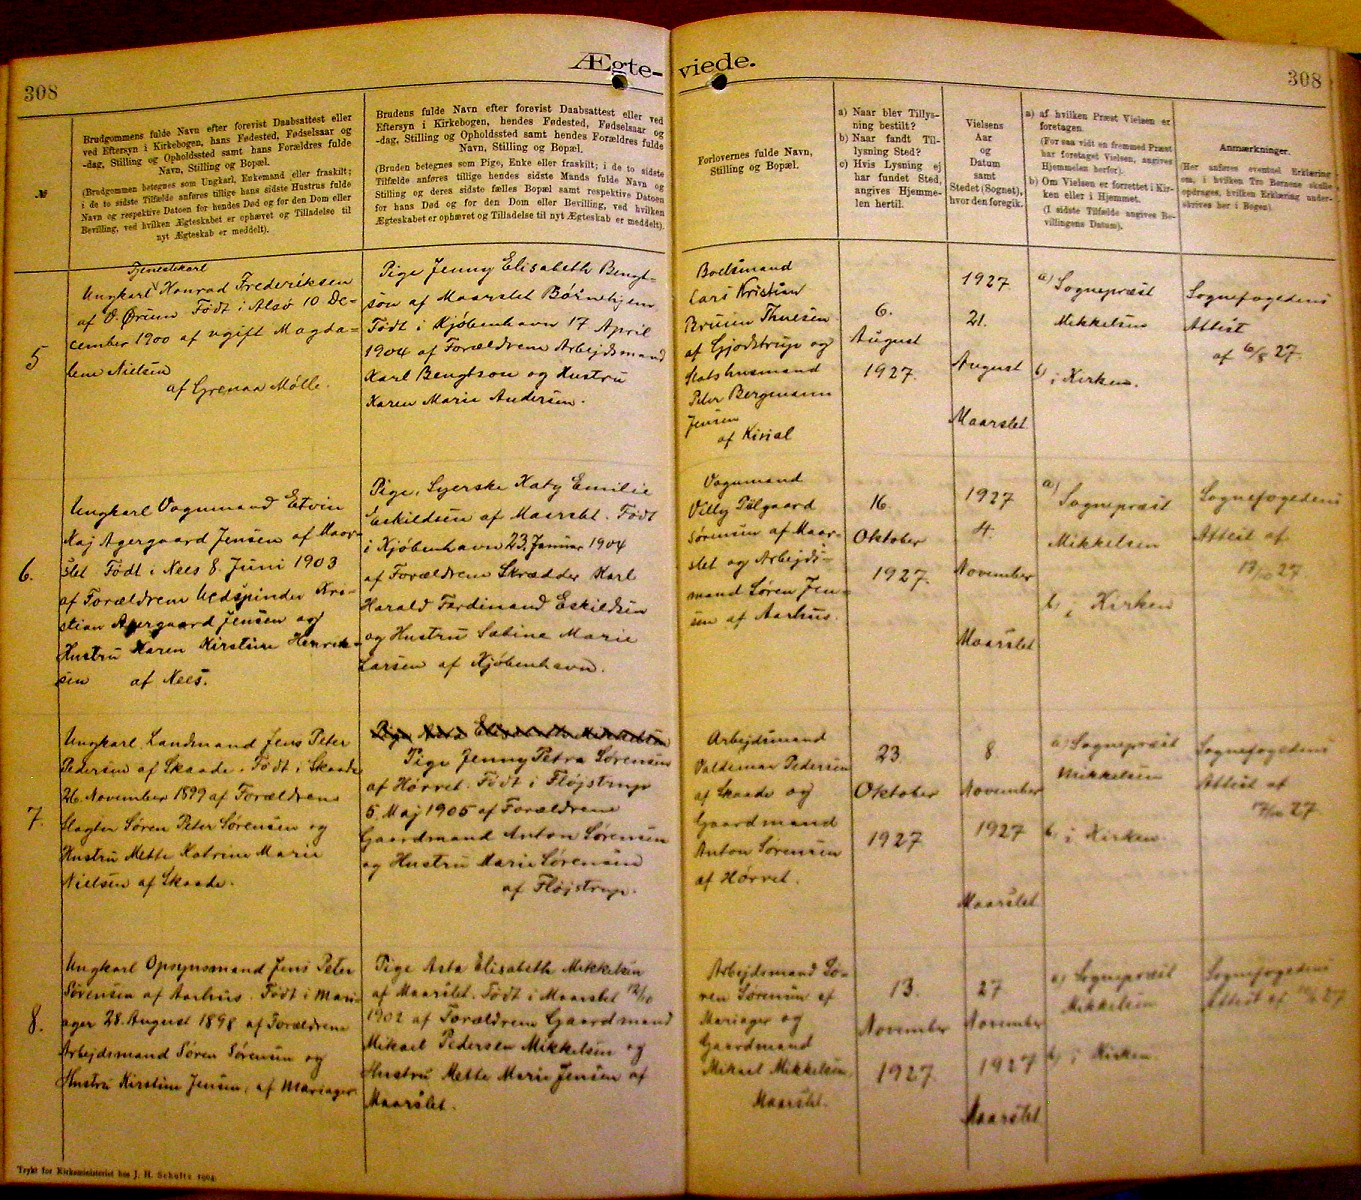 308
Ægte-
viede.
308
№
Brudgommens fulde Navn efter forevist Daabsattest eller
ved Eftersyn i Kirkebogen, hans Fødested, Fødselsaar og
-dag, Stilling og Opholdssted samt hans Forældres fulde
Navn, Stilling og Bopæl.
(Brudgommen betegnes som Ungkarl, Enkemand eller fraskilt;
i de to sidste Tilfælde anføres tillige hans sidste Hustrus fulde
Navn og respektive Datoen for hendes Død og for den Dom eller
Bevilling, ved hvilken Ægteskabet er ophævet og Tilladelse til
nyt Ægteskab er meddelt).
Brudens fulde Navn efter forevist Daabsattest eller ved
Eftersyn i Kirkebogen, hendes Fødested, Fødselsaar og
-dag, Stilling og Opholdssted samt hendes Forældres fulde
Navn, Stilling og Bopæl.
(Bruden betegnes som Pige, Enke eller fraskilt; i de to sidste
Tilfælde anføres tillige hendes sidste Mands fulde Navn og
Stilling og deres sidste fælles Bopæl samt respektive Datoen
for hans Død og for den Dom eller Bevilling, ved hvilken
Ægteskabet er ophævet og Tilladelse til nyt Ægteskab er meddelt).
Forlovernes fulde Navn,
Stilling og Bopæl.
a) Naar blev Tillys-
ning bestilt?
b) Naar fandt Til-
lysning Sted?
c) Hvis Lysning ej
har fundet Sted,
angives Hjemme-
len hertil.
Vielsens
Aar
og
Datum
samt
Stedet (Sognet),
hvor den foregik.
a) af hvilken Præst Vielsen er
foretagen.
(For saa vidt en fremmed Præst
har foretaget Vielsen, angives
Hjemmelen herfor).
b) Om Vielsen er forrettet i Kir-
ken eller i Hjemmet.
(I sidste Tilfælde angives Be-
villingens Datum).
Anmærkninger.
(Her anføres eventuel Erklæring
om, i hvilken Tro Børnene skulle
opdrages, hvilken Erklæring under-
skrives her i Bogen).
5
Tjenestekarl
Ungkarl Konrad Frederiksen
af Ø. Ørum Født i Alsø 10 De-
cember 1900 af ugift Magda-
lene Nielsen
af Grenaa Mølle.
Pige Jenny Elisabeth Bengt-
son af Maarslet Børnehjem
Født i Kjøbenhavn 17 April
1904 af Forældrene Arbejdsmand
Karl Bengtson og Hustru
Karen Marie Andersen.
Boelsmand
Cars Kristian
Thuesen
af Gjordstrup og
Statshusmand
Peter Bergmann
Jensen
af Kirial
6.
August
1927.
1927
21.
August
Maarslet
a) Sognepræst
Mikkelsen
b) i Kirken.
Sognefogedens
Attest
af 6/8 27.
6.
Ungkarl Vognmand Etvin
Kaj Agergaard Jensen af Maar-
slet Født i Nees 8. Juni 1903
af Forældrene Uldspinder Kri-
stian Agergaard Jensen og
Hustru Karen Kirstine Henrik-
sen af Nees.
Pige, Syerske Katy Emilie
Eskildsen af Maarslet. Født
i Kjøbenhavn 23. Januar 1904
af Forældrene Skrædder Karl
Harald Ferdinand Eskildsen
og Hustru Sabine Marie
Larsen af Kjøbenhavn.
Vognmand
Villy Pilgaard
Sørensen af Maar-
slet og Arbejds-
mand Søren Jen-
sen af Aarhus.
16.
Oktober
1927.
1927
4.
November
Maarslet
a) Sognepræst
Mikkelsen
b) i Kirken
Sognefogedens
Attest af
13/10 27
7.
Ungkarl, Landmand Jens Peter
Pedersen af Skaade. Født i Skaade
26. November 1899 af Forældrene
Slagter Søren Peter Sørensen og
Hustru Mette Katrine Marie
Nielsen af Skaade.
Pige Jenny Petra Sørensen
af Hørret. Født i Fløjstrup
5. Maj 1905 af Forældrene
Gaardmand Anton Sørensen
og Hustru Marie Sørensen
af Fløjstrup.
Arbejdsmand
Valdemar Pedersen
af Skaade og
Gaardmand
Anton Sørensen
af Hørret.
23.
Oktober
1927
8.
November
1927
Maarslet
a) Sognepræst
Mikkelsen
b, i Kirken.
Sognefogedens
Attest af
27.
8.
Ungkarl Opsynsmand Jens Peter
Sørensen af Aarhus. Født i Mari-
ager 28. August 1898 af Forældrene
Arbejdsmand Søren Sørensen og
Hustru Kirstine Jensen, af Mariager.
Pige Asta Elisabeth Mikkelsen
af Maarslet. Født i Maarslet 12/10
1902 af Forældrene Gaardmand
Mikael Pedersen Mikkelsen og
Hustru Mette Marie Jensen af
Maarslet.
Arbejdsmand Sø-
ren Sørensen af
Mariager og
Gaardmand
Mikael Mikkelsen,
Maarslet.
13.
November
1927.
27
November
1927
Maarslet
a) Sognepræst
Mikkelsen
b) i Kirken.
Sognefogedens
Attest af 27
Trykt for Kirkeministeriet hos J. H. Schultz 1904.